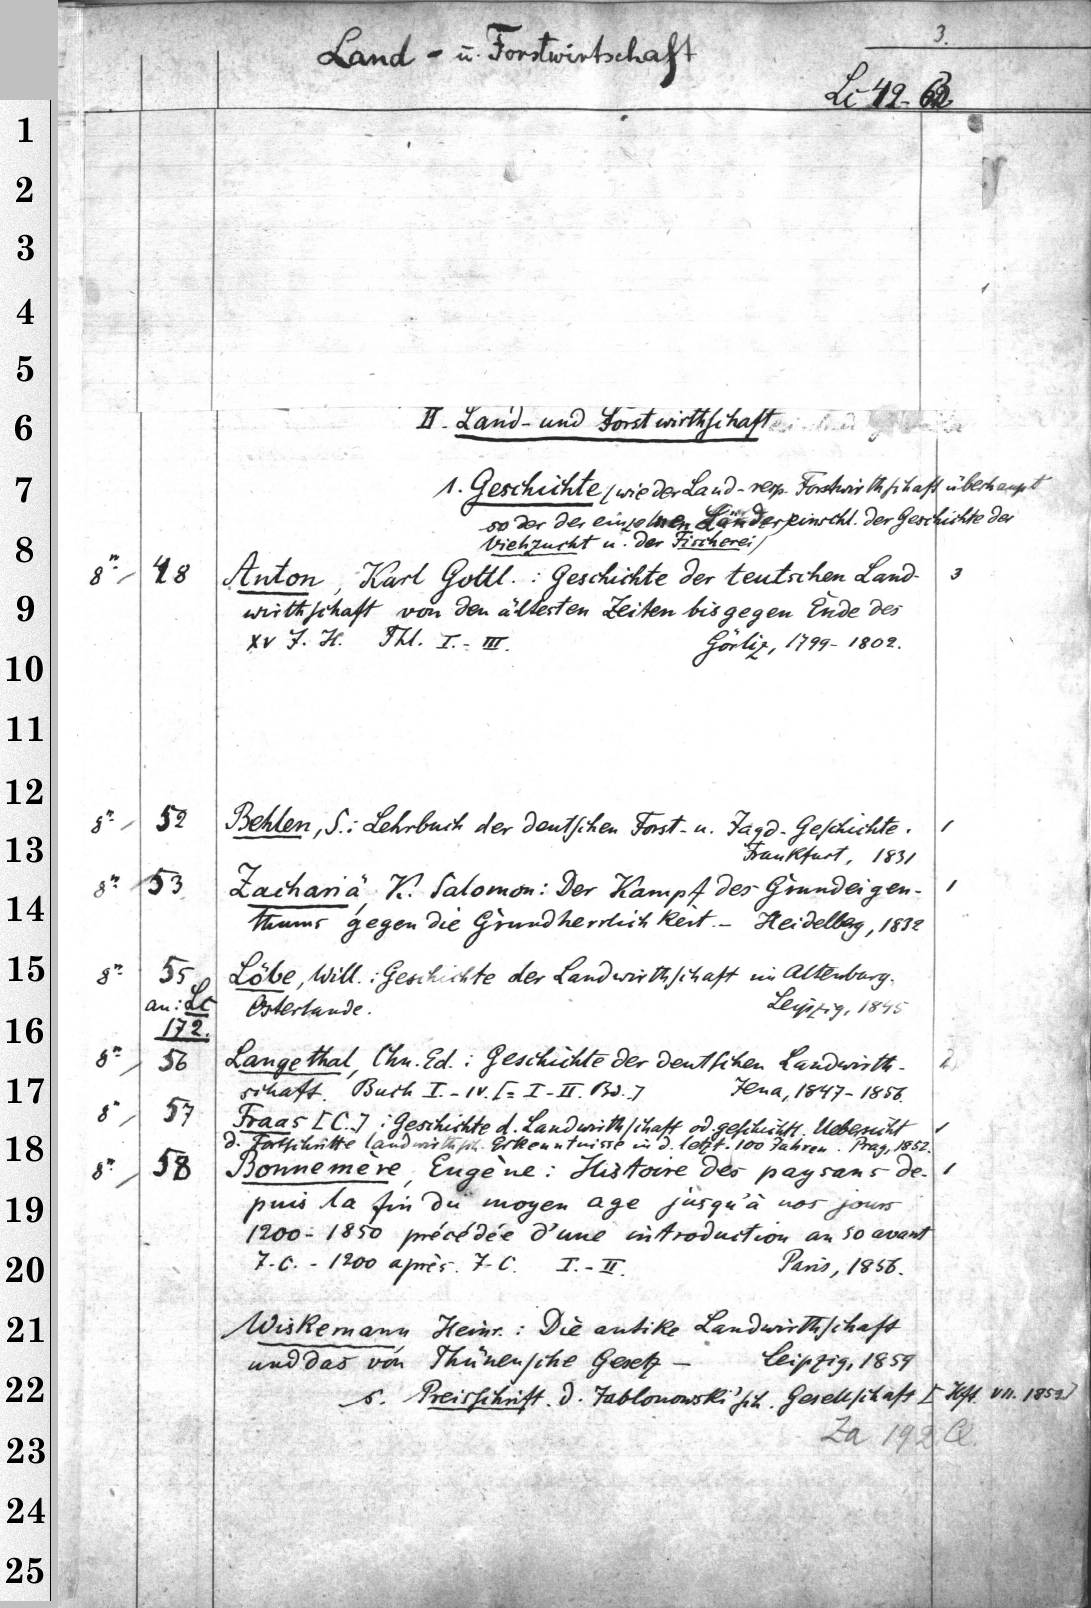 3.
Land - u. Forstwirtschaft
Lc 49-
1
2
3
4
5
6
II. Land- und Forstwirthschaft
7
1. Geschichte (wie der Land- resp. Forstwirthschaft überhaupt
so der der einzelnen Länder, einschl. der Geschichte der
8
Viehzucht u. der Fischerei)
8° 48 Anton, Karl Gottl.: Geschichte der teutschen Land- 3
9
wirthschaft von den ältesten Zeiten bis gegen Ende des
XV J. H. Thl. I.-III. Görliz, 1799-1802.
10
11
12
8° 52 Behlen, S.: Lehrbuch der deutschen Forst- u. Jagd-Geschichte. 1
13
Frankfurt, 1831
8° 53 Zachariä, K. Salomon: Der Kampf des Grundeigen- 1
14
thums gegen die Grundherrlichkeit. - Heidelberg, 1832
15
8° 55 Löbe, Will.: Geschichte der Landwirthschaft im Altenburg.
an: Lc Osterlande. Leipzig, 1845
16
172.
8° 56 Langethal, Chn. Ed.: Geschichte der deutschen Landwirth- 2
17
schaft. Buch I.-IV. [= I-II. Bd.] Jena, 1847-1856.
8° 57 Fraas [C.]: Geschichte d. Landwirthschaft od. geschichtl. Uebersicht 1
18
d. Fortschritte landwirthsch. Erkenntnisse in d. letzt. 100 Jahren. Prag, 1852.
8° 58 Bonnemère, Eugène: Histoire des paysans de- 1
19
puis la fin du moyen age jusqu'à nos jours
1200-1850 précédée d'une introduction an 50 avant
20
J.-C. - 1200 après. J-C. I.-II. Paris, 1856.
21
Wiskemann Heinr.: Die antike Landwirthschaft
und das von Thünensche Gesetz - Leipzig, 1859
22
s. Preisschrift. d. Jablonowski'sch. Gesellschaft [Hft. VII. 1859]
23
Za 192
24
25